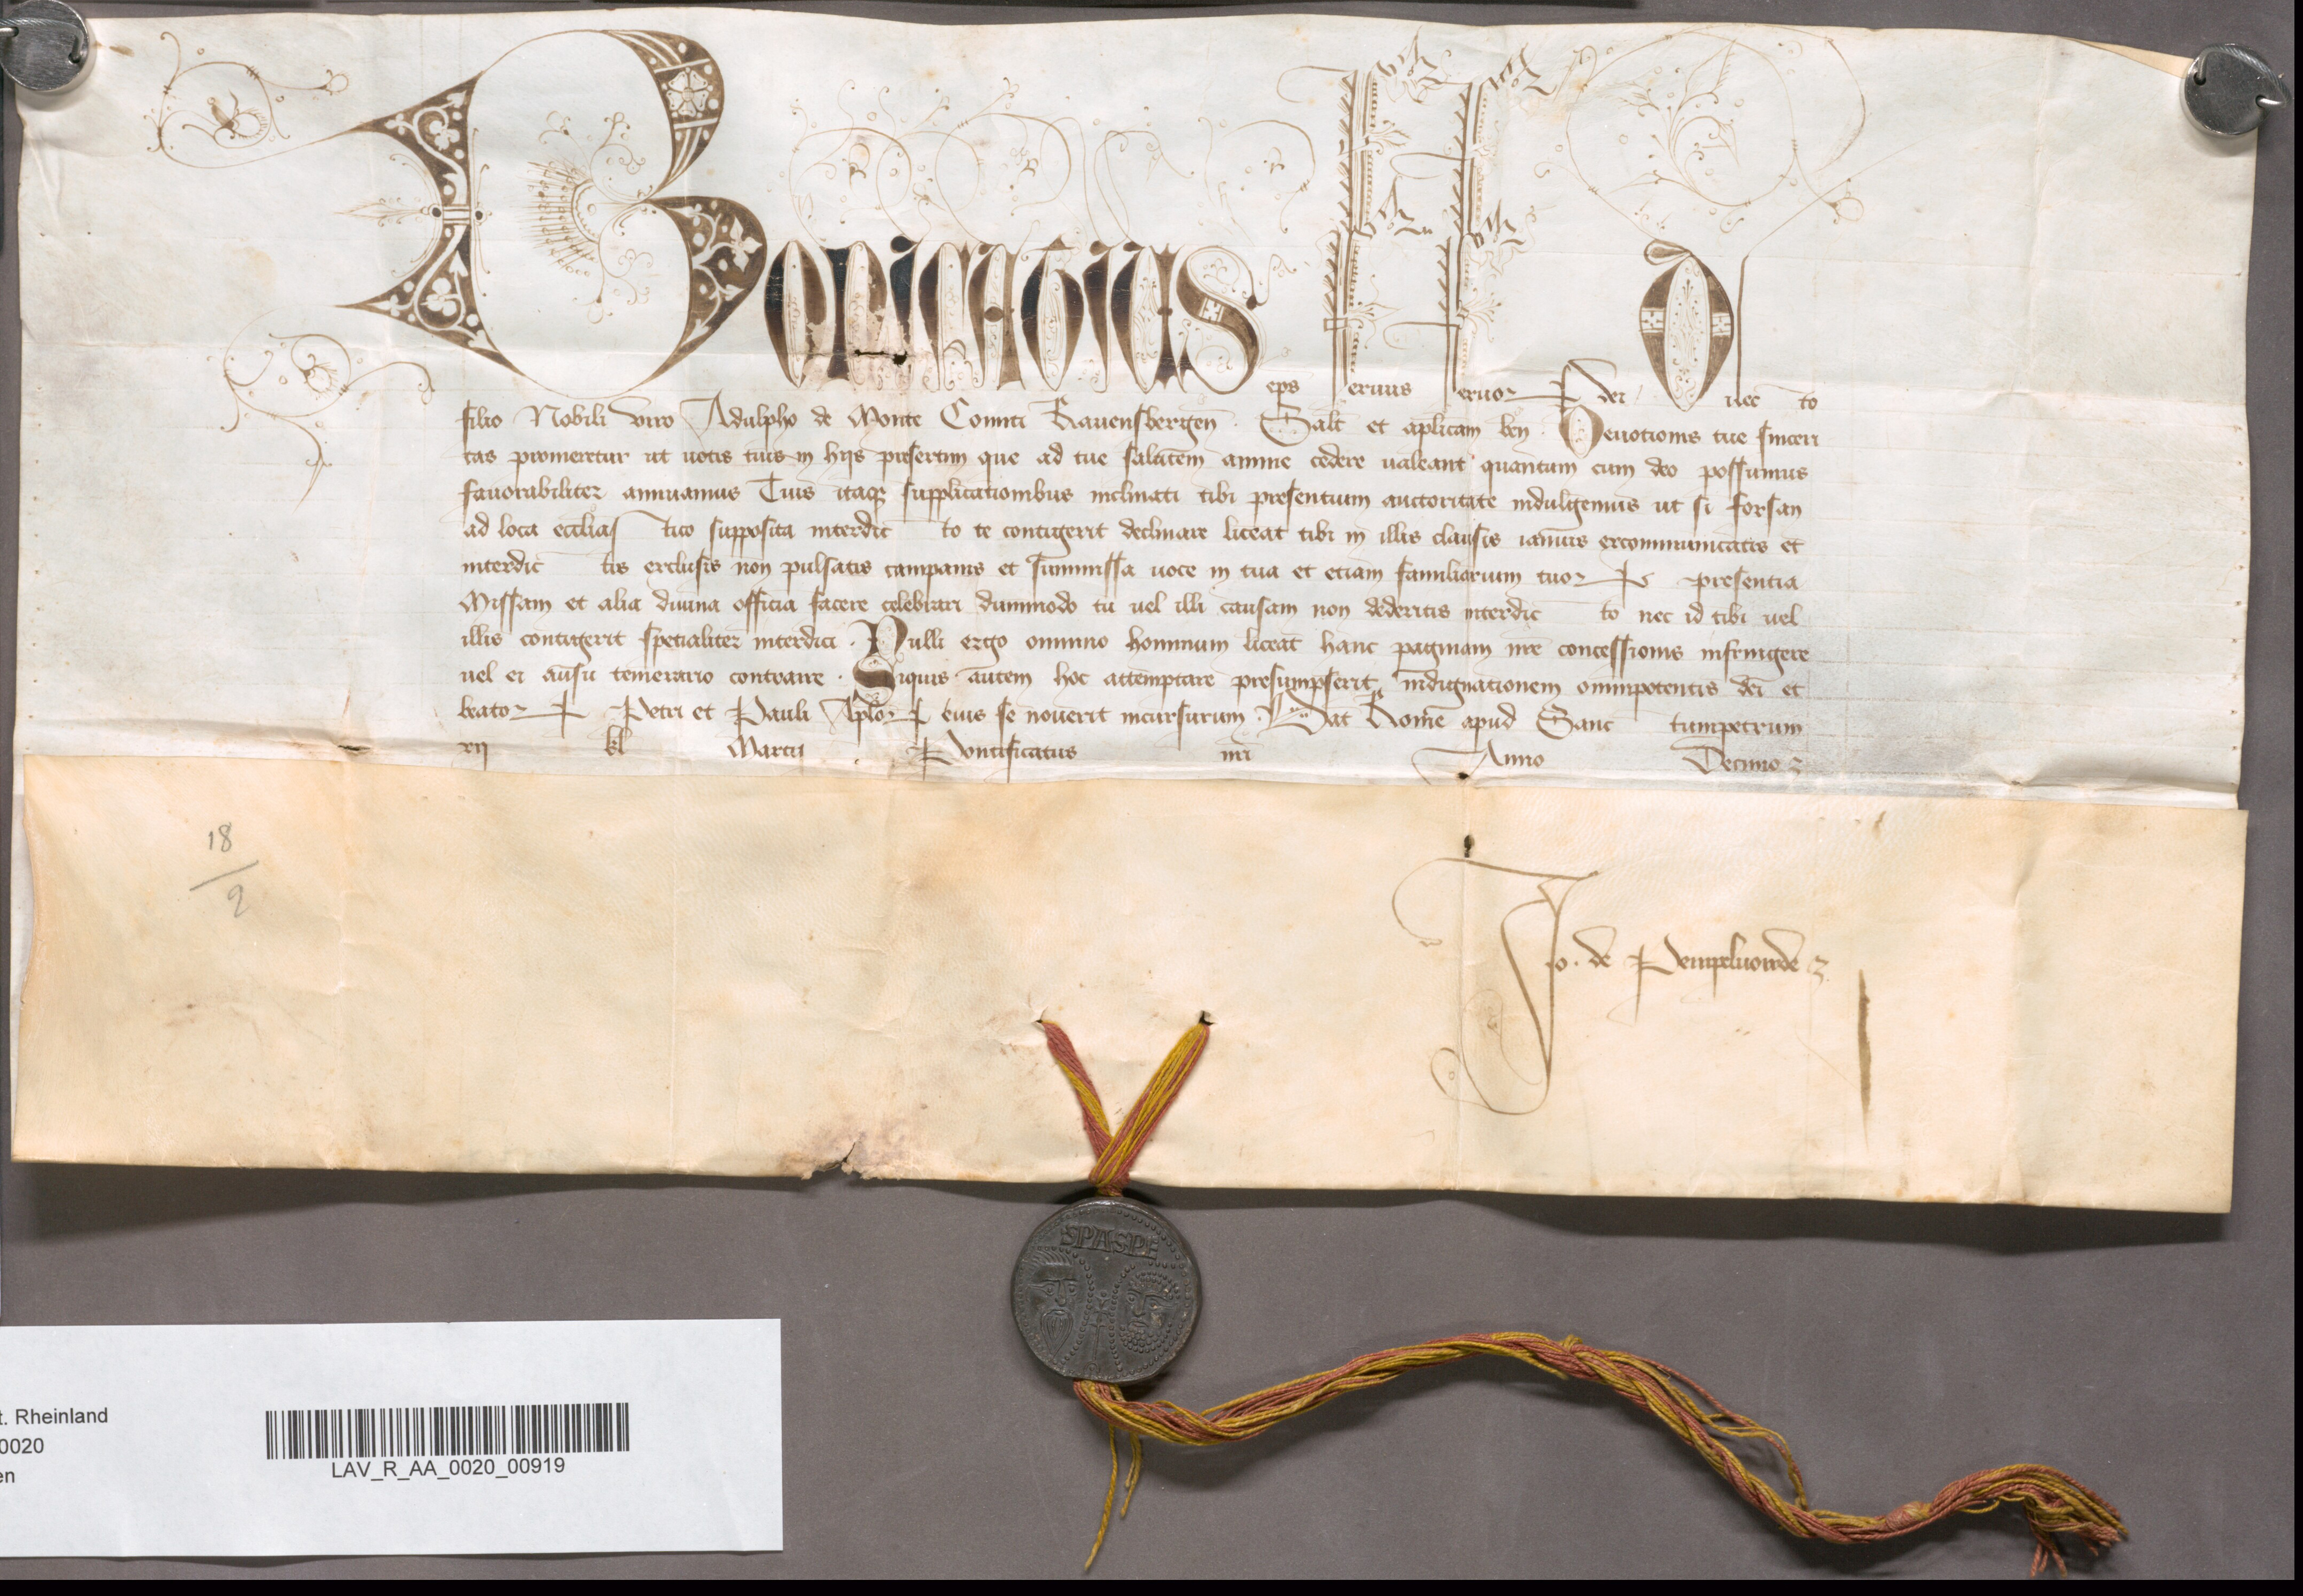 Bonifatius eps Seruus Seruor dei Dilecto
filio Nobili viro Adulpho de Monte Comiti Rauensbergen̄. Salt̄ et aplicam ben̄. Deuotionis tue sinceri
tas promeretur ut uotis tuis in hijs presertim que ad tue salutem anime cedere ualeant quantum cum deo possumus
fauorabiliter annuamus Tuis itaqꝫ supplicationibus inclinati tibi presentium auctoritate indulgemus ut si forsan
ad loca eccliastico supposita interdicto te contigerit declinare liceat tibi in illis clausis ianuis excommunicatis et
interdictis exclusis non pulsatis campanis et summissa uoce in tua et etiam familiarium tuoꝝ presentia
Missam et alia diuina officia facere celebrari dummodo tu uel illi causam non dederitis interdicto nec id tibi uel
illis contigerit specialiter interdici. Nulli ergo omnino hominum liceat hanc paginam nr̄e concessionis infringere
uel ei ausu temerario contraire. Siquis autem hoc attemptare presumpserit indignationem omnipotentis dei et
beatoꝝ Petri et Pauli Aploꝝ eius se nouerit incursurum. Dat̄ Rome apud Sanctumpetrum
xij kl Martij Pontificatus nr̄i Anno Decimo
18
9
Jo. de Pempeluorde
SPASPE
t. Rheinland
0020
en
LAV_R_AA_0020_00919